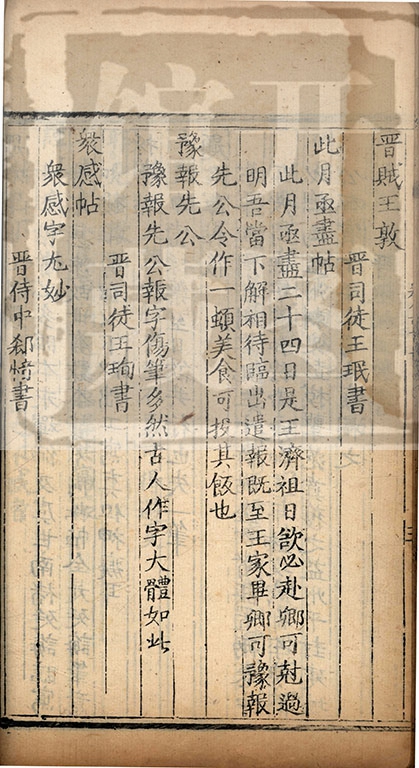 晋賊王敦
晋司徒王珉書
此月亟盡帖
此月亟盡二十四日是王濟祖日欲必赴卿可尅過
明吾當下解相待臨出遣報既至王家畢卿可豫報
先公令作一頓美食可投其飯也
豫報先公
豫報先公報字傷筆多然古人作字大體如此
晋司徒王珣書
衆感帖
衆感字尤妙
晋侍中郄愔書